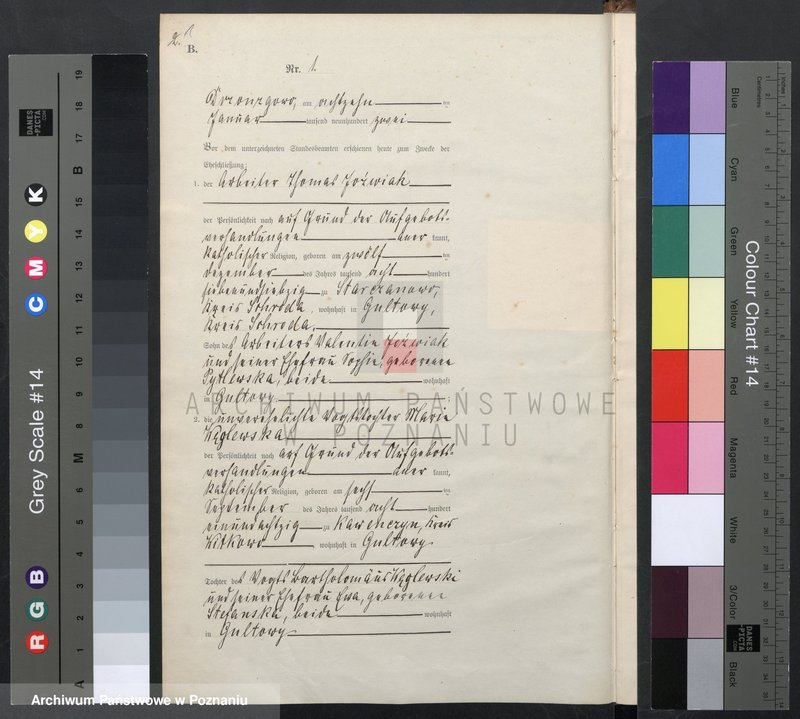 2. 1
B.
Nr. 1.
am achtzehn ten
Januar tausend neunhundert zwei
Vor dem unterzeichneten Standesbeamten erschienen heute zum Zwecke der
Eheschließung:
1. der Arbeiter Thomas Jozwiak
der Persönlichkeit nach auf Grund der Aufgebots-
verhandlungen aner kannt,
katholischer Religion, geboren am zwölf ten
Dezember des Jahres tausend acht hundert
siebenundsiebzig zu Starczanowo,
Kreis Schroda, wohnhaft in Gultowy,
Kreis Schroda,
Sohn des Arbeiters Valentin Jozwiak
und seiner Ehefrau Sophie, geborenen
beide wohnhaft
in Gultowy
2. die unverehelichte Vogtstochter Marie
Węglewska
der Persönlichkeit nach auf Grund der Aufgebots-
verhandlungen aner kannt,
katholischer Religion, geboren am sechs ten
September des Jahres tausend acht hundert
einundachtzig zu Karczewo, Kreis
Witkowo wohnhaft in Gultowy
Tochter des Vogts Bartholomäus Węglewski
und seiner Ehefrau Ewa, geborenen
Stefanska, beide wohnhaft
in Gultowy
ARCHIWUM PAŃSTWOWE
W POZNANIU
Archiwum Państwowe w Poznaniu
Grey Scale #14
R G B
C M Y K
A 1 2 3 4 5 M 6 7 8 9 10 11 12 13 14 15 B 16 17 18 19
DANES
PICTA
.COM
Colour Chart #14
Blue
Cyan
Green
Yellow
Red
Magenta
White
3/Color
Black
Inches
Centimetres
DANES
PICTA
.COM